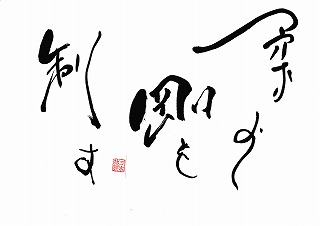 柔よく
剛を
制す